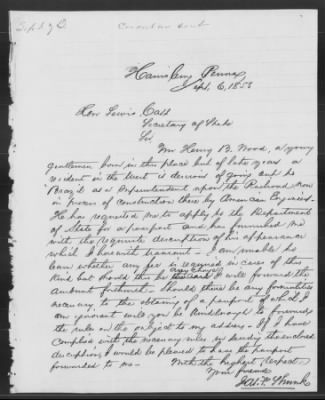 Harrisburg Penna
Sept. 6, 1858
Hon Lewis Cass
Secretary of State
Sir
Mr Henry B. Wood, a young
gentleman born in this place but of late years a
resident in the West is desirous of going out to
Brazil as a Superintendent upon the Railroad now
in process of construction there by American Engineers.
He has requested me to apply to the Department
of State for a passport and has furnished me
with the requisite description of his appearance
which I herewith transmit. I am unable to
learn whether any fee is required in cases of this
kind but should there be any charge I will forward the
amount forthwith. Should there be any formalities
necessary to the obtaining of a passport of which I
am ignorant will you be kind enough to forward
the rules on the subject to my address. If I have
complied with the necessary rules in sending the enclosed
description I would be pleased to have the passport
forwarded to me. With the highest respect
Your friend